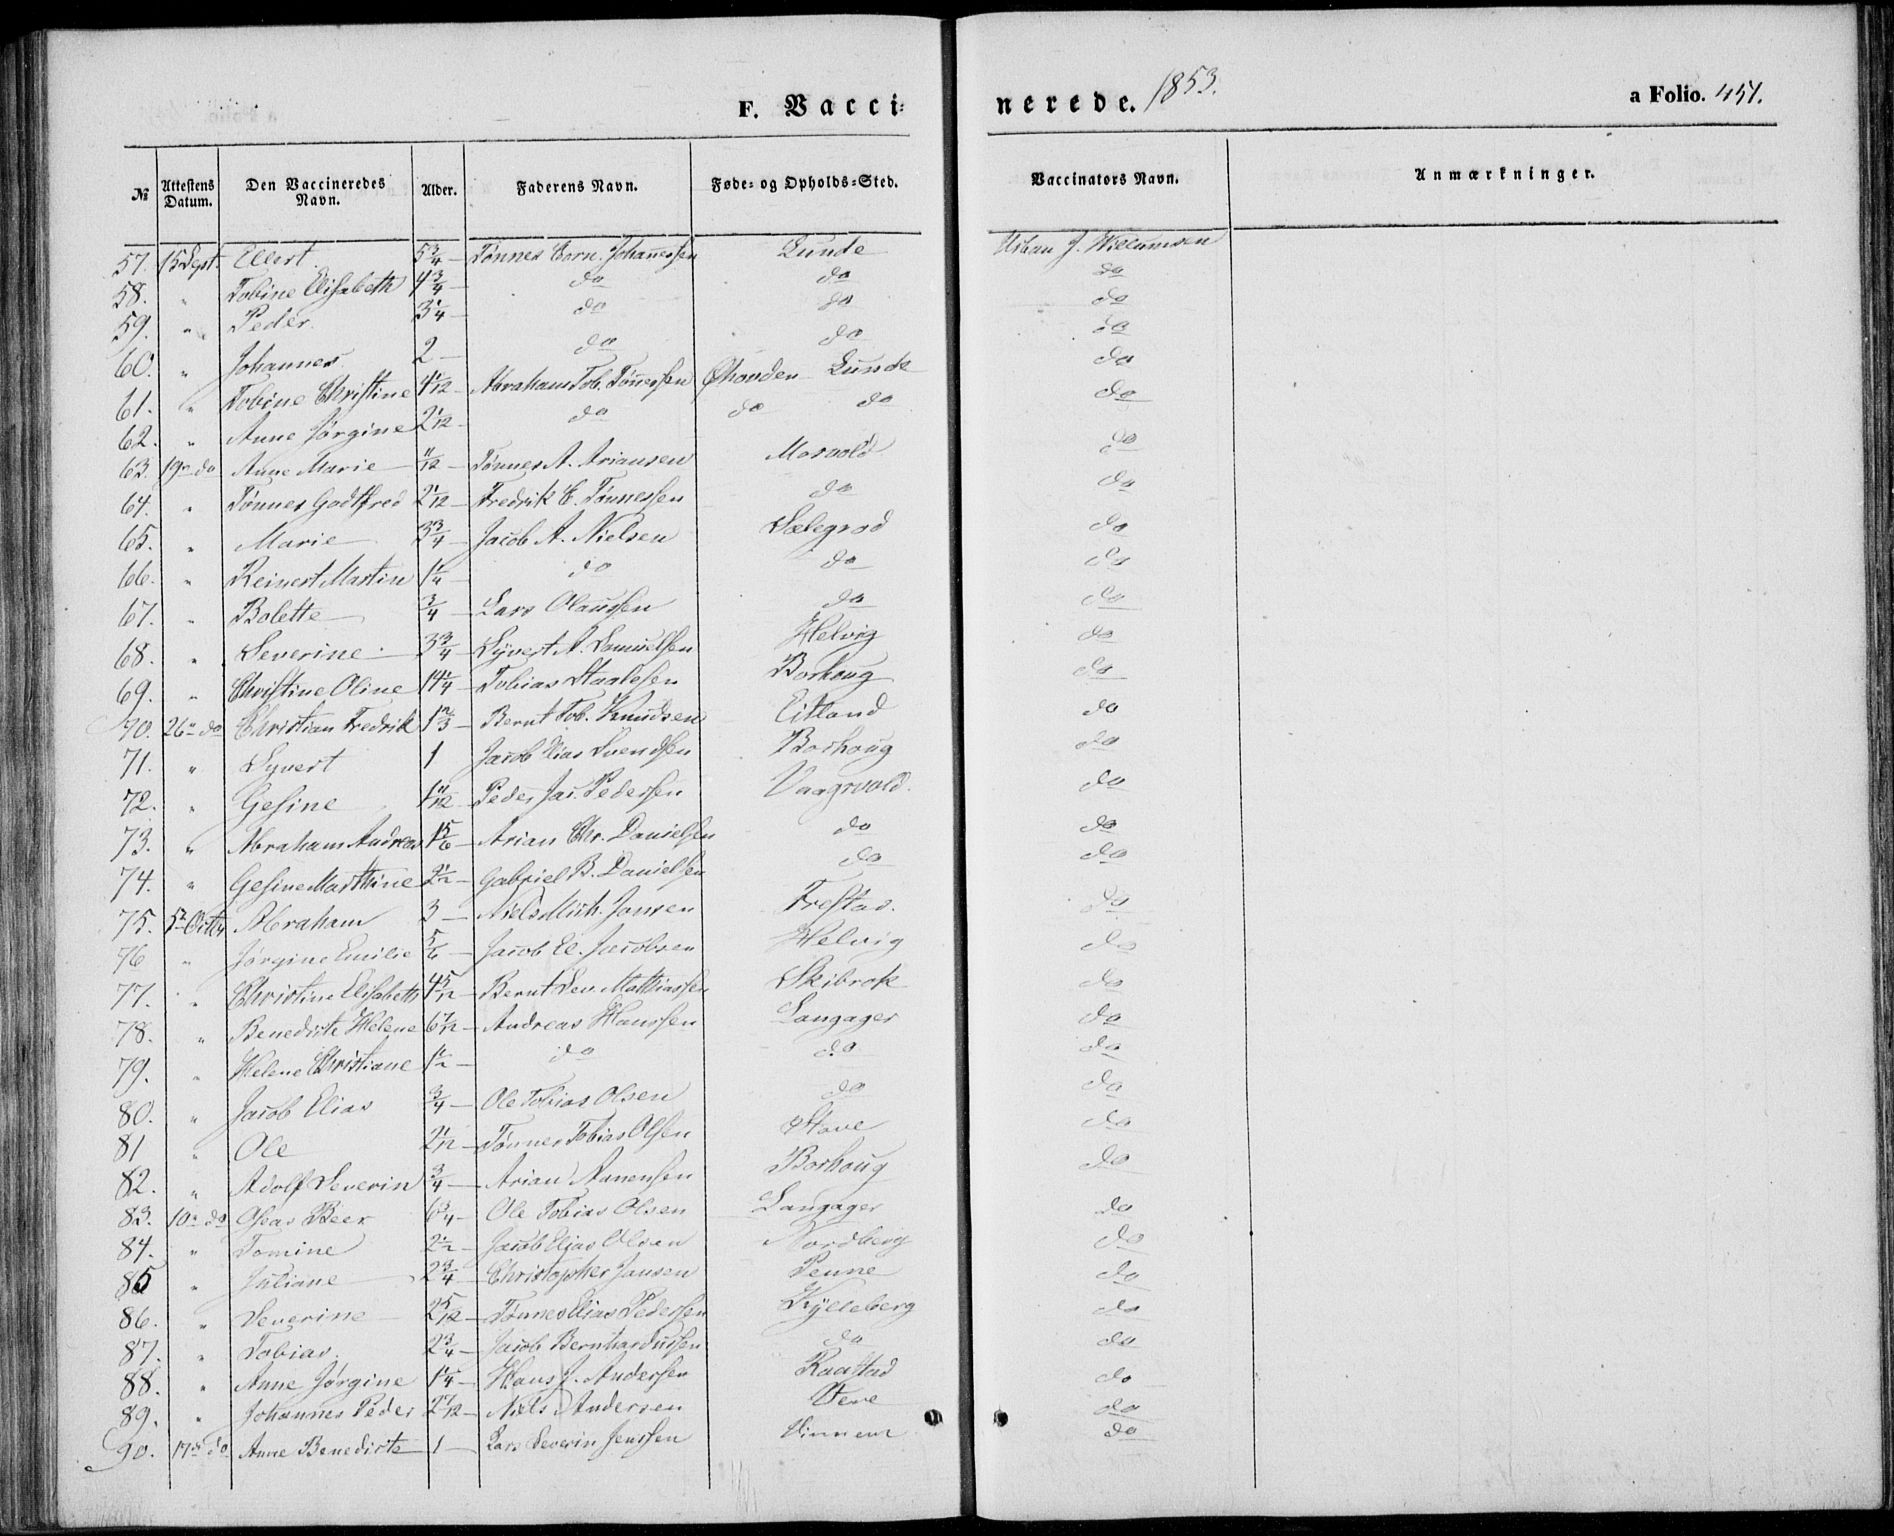 F. Vacci=nerede. 1853. a Folio. 451.
№ | Attestens Datum. | Den Vaccineredes Navn. | Alder. | Faderens Navn. | Føde= og Opholds=Sted. | Vaccinators Navn. | Anmærkninger.
57. 15 Sept. Ellert 5 3/4 – Tønnes Corn. Johannessen Lunde Urban J. Willumsen
58. " Tobine Elisabeth 4 3/4 – do do do
59. " Peder 3 1/4 – do do do
60. " Johannes 2 – do do do
61. " Tobine Christine 4 1/12 – Abraham Tob. Tønnessen Øhovden Lunde do
62. " Anne Jørgine 2 1/12 – do do do do
63. 19de do Anne Marie 11/12 – Tønnes A. Ariansen Mosvold do
64. " Tønnes Godtfred 2 1/12 – Fredrik C. Tønnessen do do
65. " Marie 3 3/4 – Jacob A. Nielsen Sælegrod do
66. " Reinert Martin 1 1/4 – do do do
67. " Bolette 3/4 – Lars Olaussen do do
68. " Severine 3 3/4 – Syvert A. Samuelsen Helvig do
69. " Christine Oline 14 1/4 – Tobias Staalesen Borhoug do
70. 26" do Christian Fredrik 1 2/3 – Bernt Tob. Knudsen Eitland do
71. " Syvert 1 Jacob Elias Svendsen Borhoug do
72. " Gesine 1 11/12 – Peder Jac. Pedersen Vaagsvold. do
73. " Abraham Andreas 1 5/6 – Arian Chr. Danielsen do do
74. " Gesine Marthine 2 1/2 – Gabriel B. Danielsen do do
75. 5te Octbr Abraham 3 – Niels Mich. Jansen Frestad. do
76 " Jørgine Emilie 5/6 – Jacob El. Jacobsen Helvig do
77. " Christine Elisabeth 4 5/12 – Bernt Sev. Mathiassen Skibrok do
78. " Benedicte Helene 6 7/12 – Andreas Hanssen Langager do
79. " Helene Christiane 1 1/2 – do do do
80. " Jacob Elias 3/4 – Ole Tobias Olsen do do
81 " Ole 2 1/12 – Tønnes Tobias Olsen Stave do
82. " Adolf Severin 3/4 – Arian Aanensen Borhoug do
83. 10" do Oseas Beer 6 3/4 – Ole Tobias Olsen Langager do
84. " Tomine 2 1/2 – Jacob Elias Olsen Nordberg do
85 " Juliane 2 3/4 – Christopher Jansen Penne do
86. " Severine 2 5/12 – Tønnes Elias Pedersen Kylleberg do
87. " Tobias. 2 3/4 – Jacob Bernhardussen do do
88. " Anne Jørgine 1 1/4 – Hans J. Andersen Raastad do
89. " Johannes Peder 2 7/12 – Niels Andersen Vere do
90. 17de do Anne Benedicte 1 – Lars Severin Jenssen do